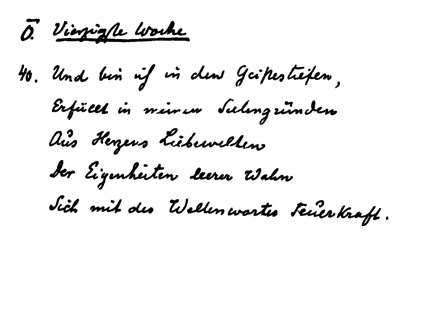 Ō. Vierzigste Woche
40. Und bin ich in den Geistestiefen,
Erfüllt in meinen Seelengründen
Aus Herzens Liebewelten
Der Eigenheiten leerer Wahn
Sich mit des Weltenwortes Feuerkraft.